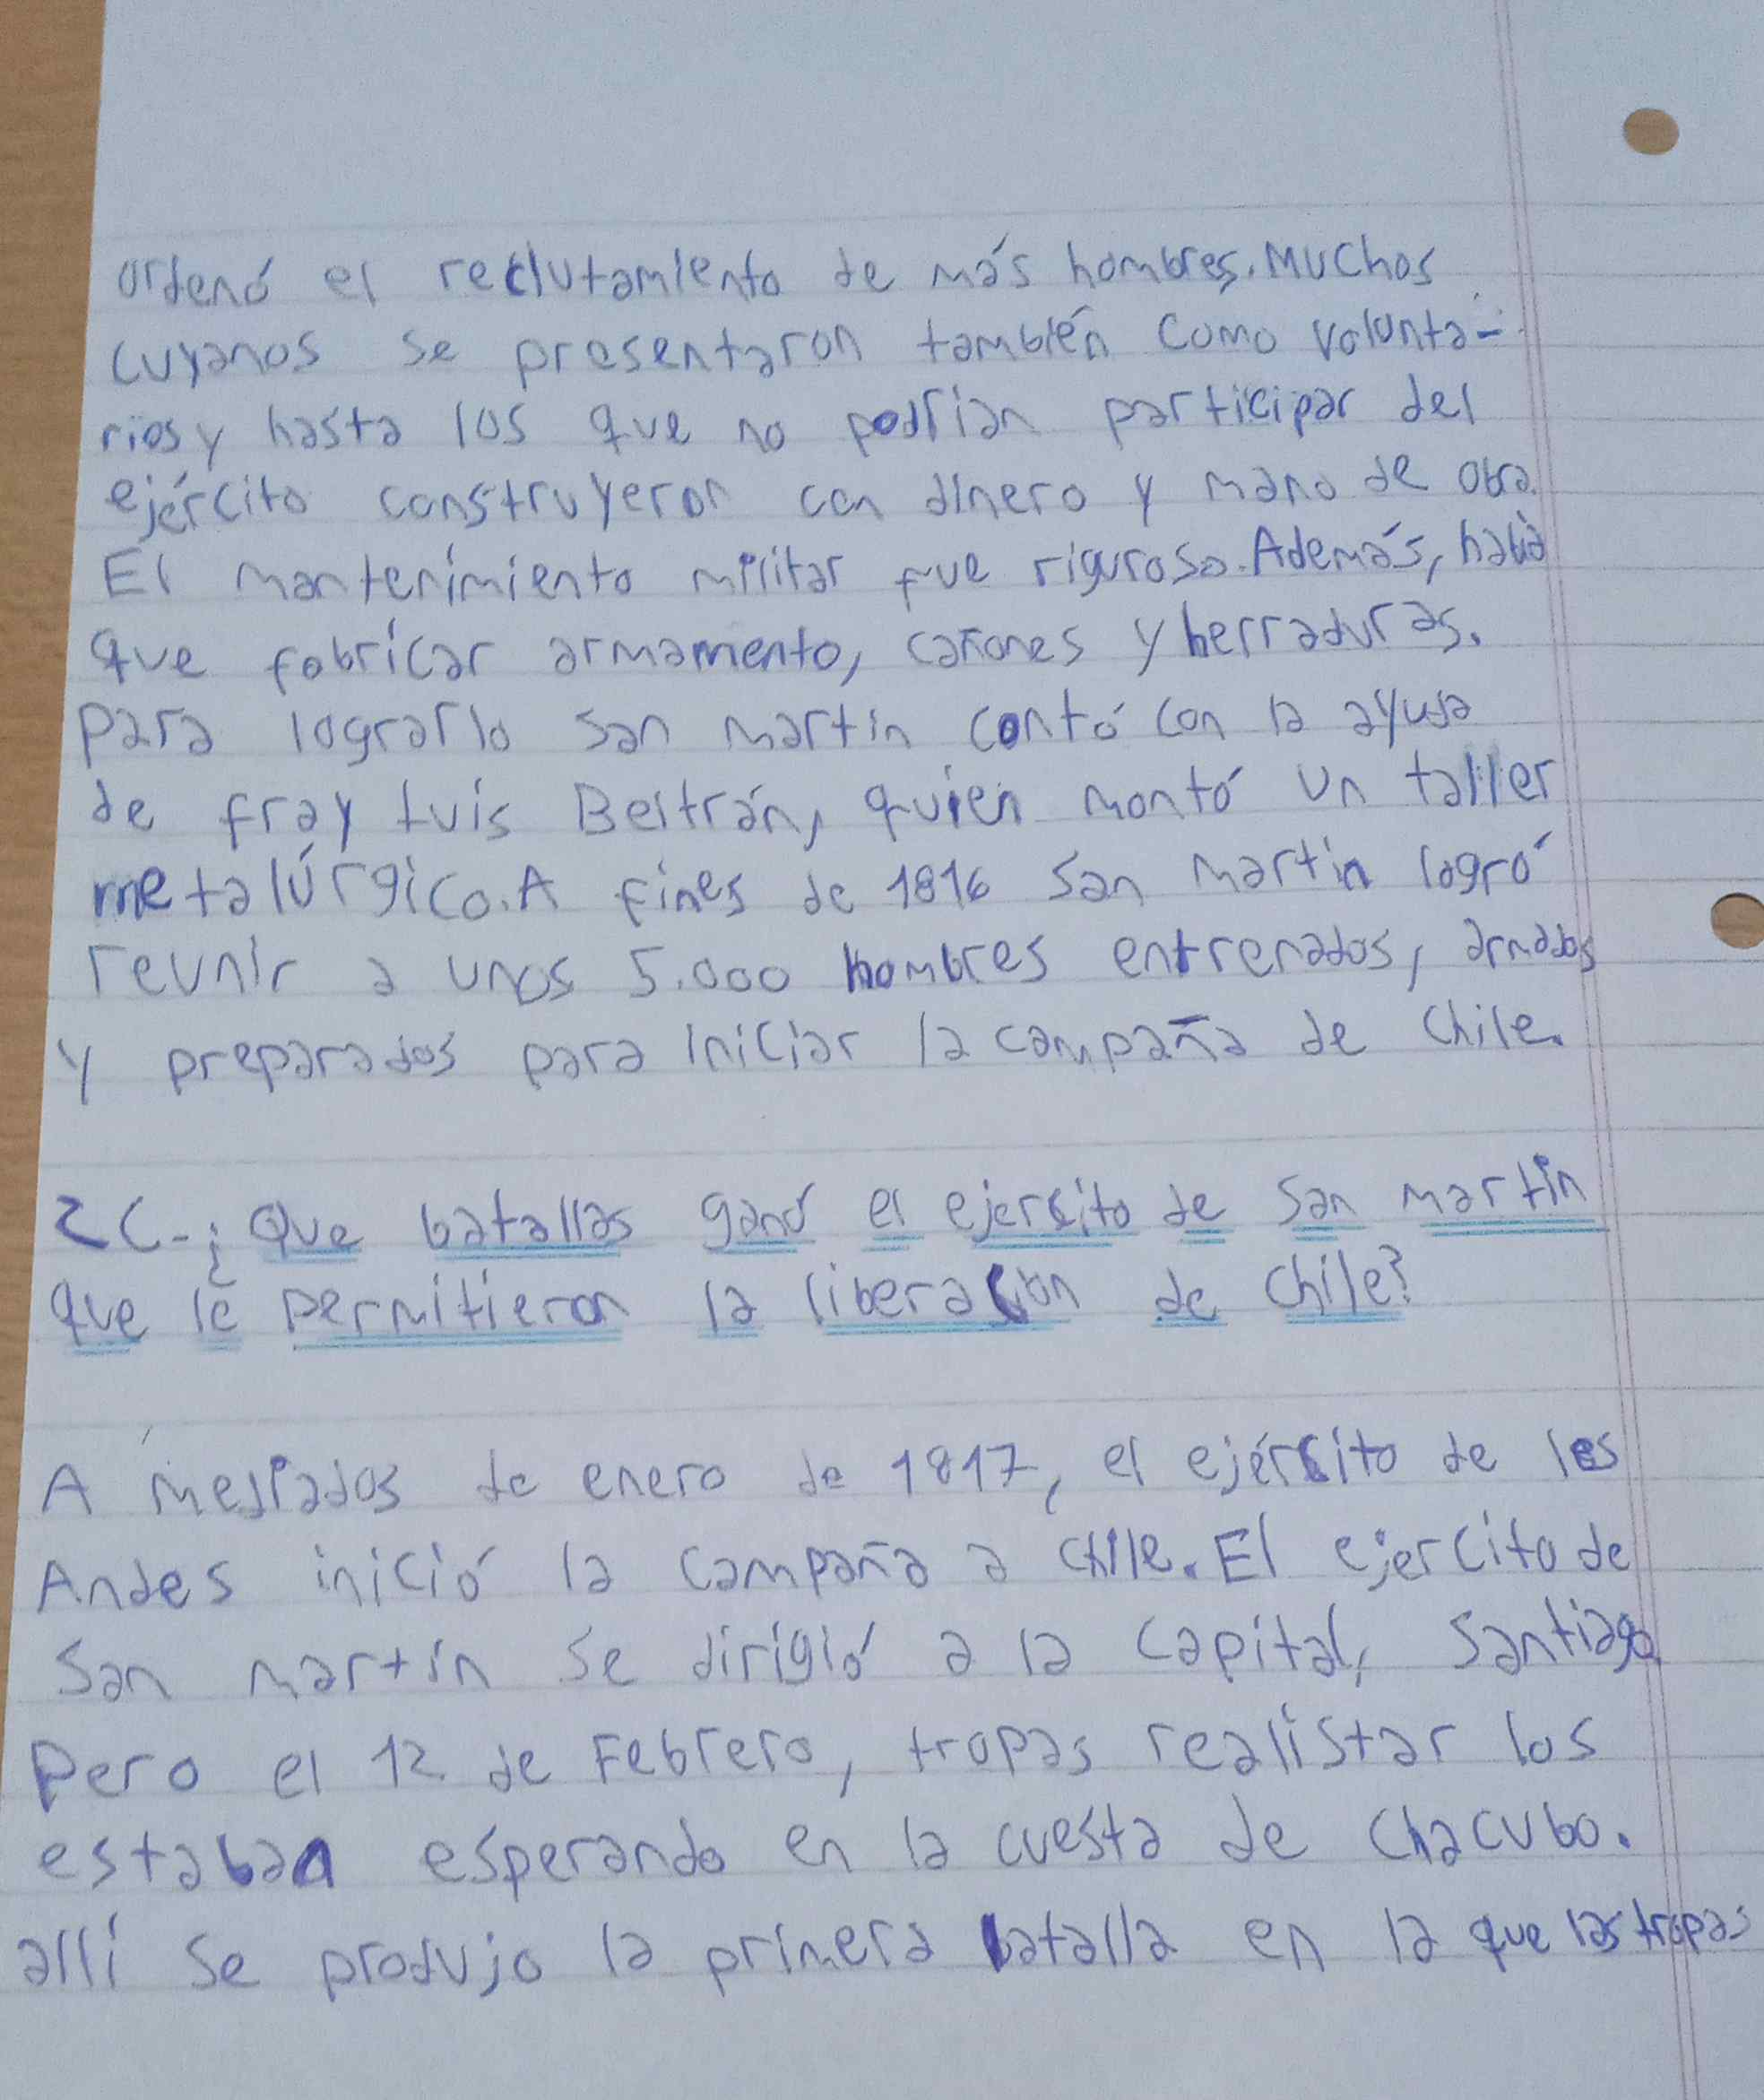 ordenó el reclutamiento de más hombres. Muchos
cuyanos se presentaron también como volunta-
rios y hasta los que no podían participar del
ejército construyeron con dinero y mano de obra.
El mantenimiento militar fue riguroso. Además, había
que fabricar armamento, cañones y herraduras.
Para lograrlo San Martín contó con la ayuda
de fray Luis Beltrán, quien montó un taller
metalúrgico. A fines de 1816 San Martín logró
reunir a unos 5.000 hombres entrenados, armados
y preparados para iniciar la campaña de Chile.
2C-¿Que batallas ganó el ejercito de San martín
que le permitieron la liberacion de Chile?
A mediados de enero de 1817, el ejército de los
Andes inició la campaña a Chile. El ejercito de
San martín se dirigió a la capital, Santiago
Pero el 12 de Febrero, tropas realistar los
estaban esperando en la cuesta de Chacubo.
allí se produjo la primera batalla en la que las tropas